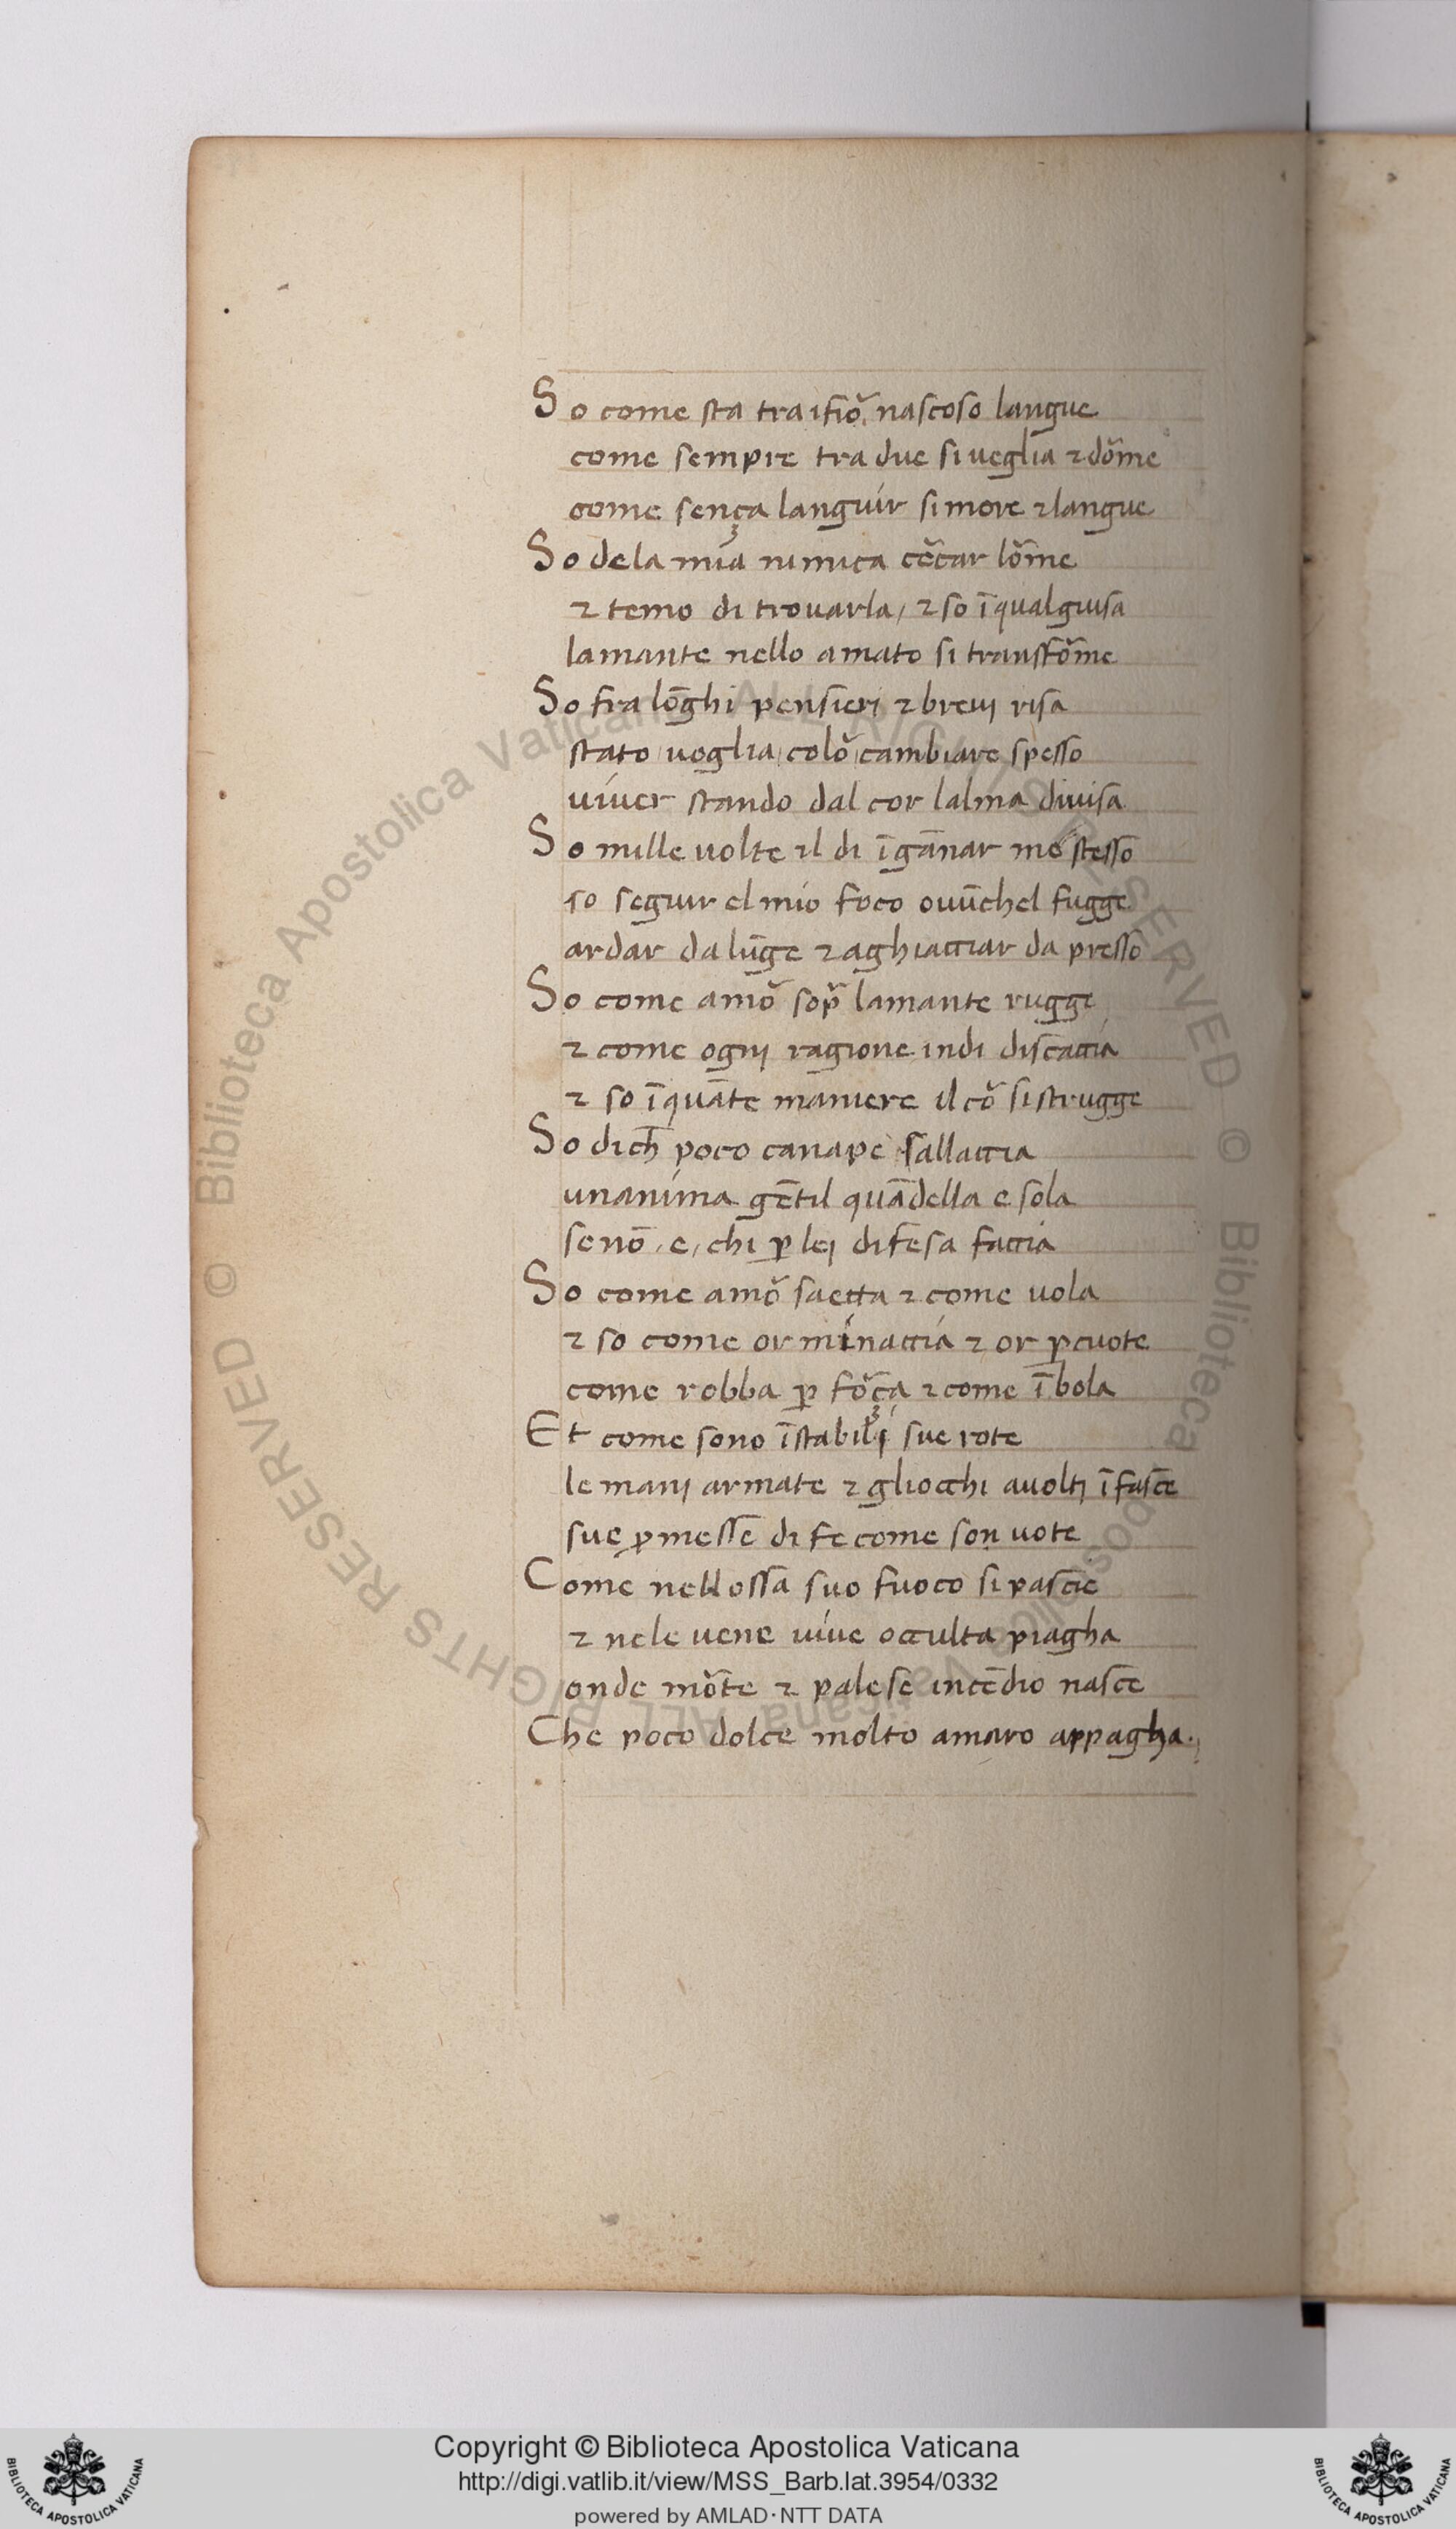 So come sta tra ifiõ nascoso langue
come sempre tra due si ueglia ⁊ dõme
come sença languir si more ⁊ langue
So dela mia nimica cẽcar lõme
⁊ temo di trouarla / ⁊ so ĩ qual guisa
lamante nello amato si transfõme
So fra lõghi pensieri ⁊ breuj risa
stato / uoglia / colõ / cambiare spesso
uiuer stando dal cor lalma diuisa
So mille uolte il di ĩgãnar me stesso
so seguir el mio foco ouũchel fugge
ardar da lũge ⁊ aghiacciar da presso
So come amõ sop̃ lamante rugge
⁊ come ognj ragione indi discaccia
⁊ so ĩ quãte maniere il cõ si strugge
So di ch̃ poco canape sallaccia
unanima gẽtil quãdella e sola
se nõ / e / chi ꝑ lej difesa faccia
So come amõ saetta ⁊ come uola
⁊ so come or minaccia ⁊ or ꝑcuote
come robba ꝑ fõça ⁊ come ĩbola
Et come sono ĩstabilj sue rote
le manj armate ⁊ gliocchi auoltj ĩ fasce
sue ꝓmesse di fe come son uote
Come nellossa suo fuoco si pascie
⁊ nele uene uiue occulta piagha
onde mõte ⁊ palese incẽdio nasce
Che poco dolce molto amaro appagha.
© Biblioteca Apostolica Vaticana ALL RIGHTS RESERVED © Biblioteca Apostolica Vaticana ALL RIGHTS RESERVED
Copyright © Biblioteca Apostolica Vaticana
http://digi.vatlib.it/view/MSS_Barb.lat.3954/0332
powered by AMLAD·NTT DATA
BIBLIOTECA APOSTOLICA VATICANA
BIBLIOTECA APOSTOLICA VATICANA